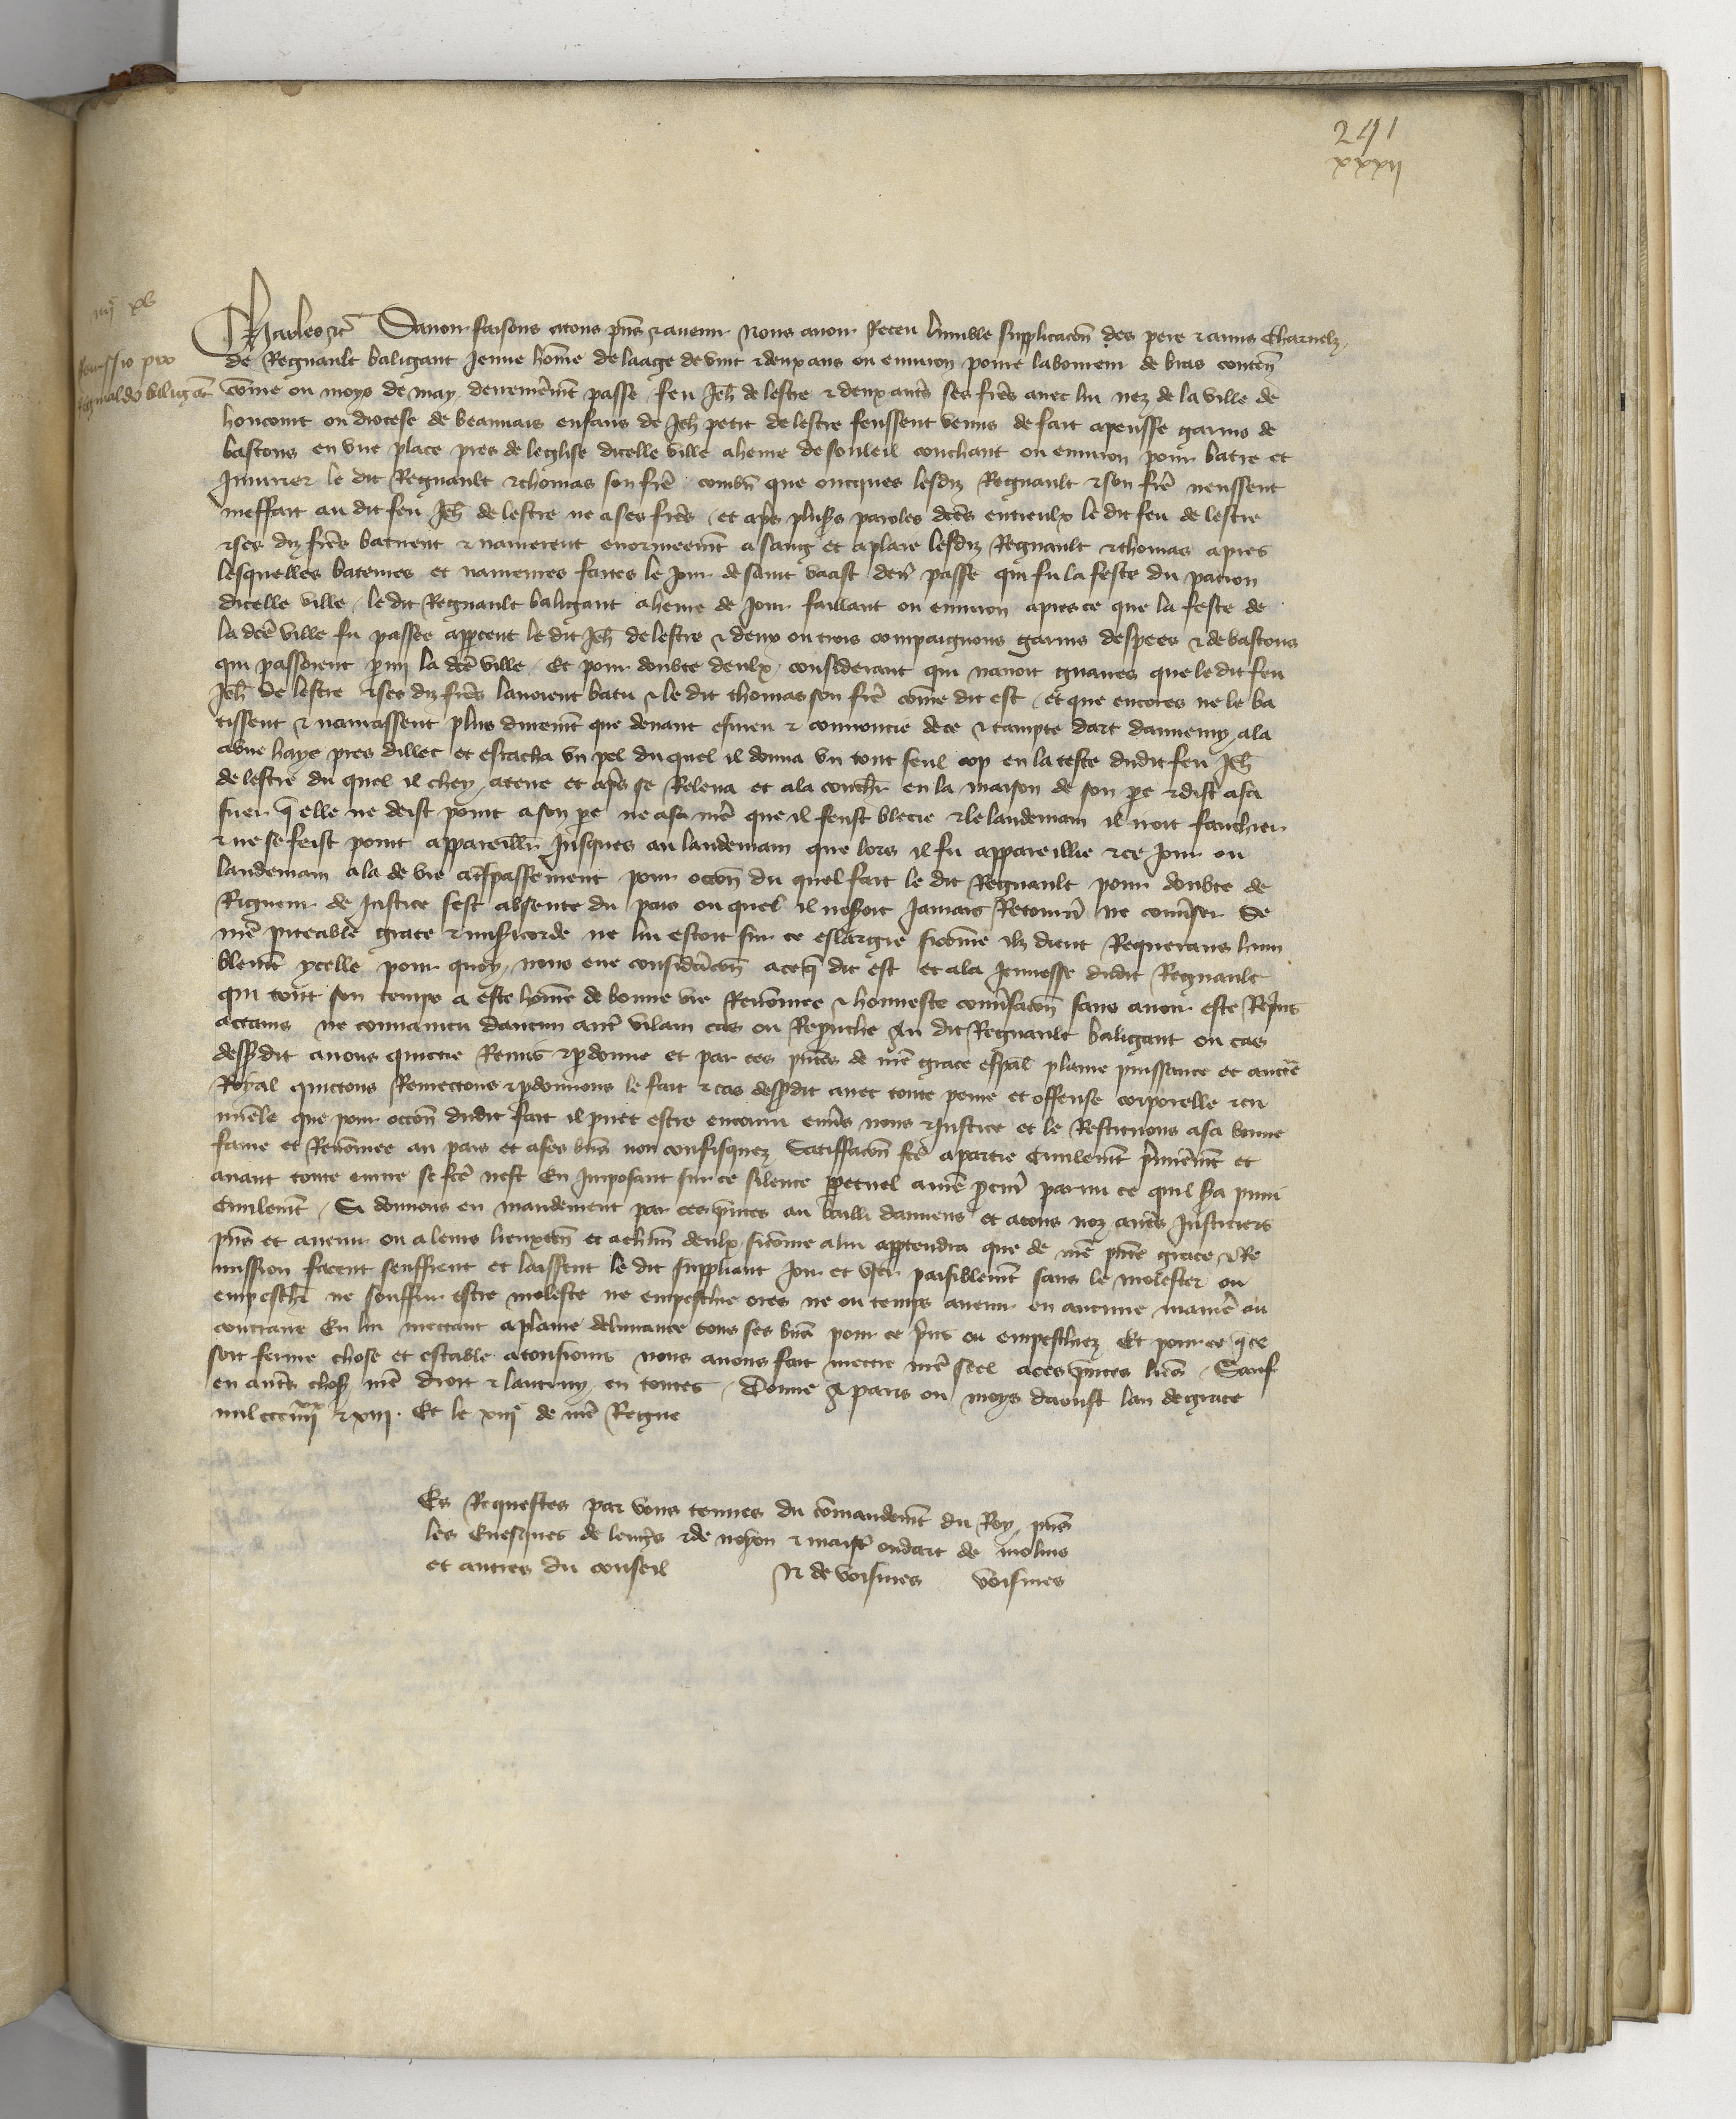 241
xxxii
Charles etc Savoir faisons a tous pns et avenir Nous avoir Receu lumble supplicacon des pere et amis Charnelz
Remissio pro
Reginaldo baligant
de Regnault baligant Jeune home de laage de vint et deux ans ou environ povre laboureur de bras conten
come ou moys de may derrenieremt passe feu Jeh de lestre et deux autres ses freres avec lui nez de la ville de
houcourt ou diocese de beauvais enfans de Jeh petit de lestre feussent venus de fait apense garnis de
bastons en une place pres de leglise dicelle ville a heure de souleil couchant ou environ pour batre et
Injurier le dit Regnault et thomas son frere combn que oncques lesdiz Regnault et son frere neussent
meffait au dit feu Jeh de lestre ne a ses freres et apres plus paroles dces entreulx le dit feu de lestre
et ses diz freres batirent et navrerent enormement a sang et a plaie lesdiz Regnault et thomas apres
lesquelles bateures et navreures faites le jour de saint vaast derr passe qui fu la feste du patron
dicelle ville le dit Regnault baligant a heure de jour faillant ou environ apres ce que la feste de
la dce ville fu passee appceut le dit Jeh de lestre et deux ou trois compaignons garnis despees et de bastons
qui passoient parmi la dce ville Et pour doubte deulx considerant qui navoit gueres que le dit feu
Jeh de lestre et ses diz freres lavoient batu et le dit thomas son frere come dit est et que encores ne le ba
tissent et navrassent plus durement que devant esmeu et couroucie de ce et tempte dart dannemy ala
a une haye pres dillec et esracha un pel du quel il donna un tout seul cop en la teste dudit feu Jeh
de lestre du quel il chey a terre et apres se Releva et ala couchr en la maison de son pe et dist a sa
suer q elle ne deist point a son pe ne a sa mere que il feust blecie et le landemain il voit fauchier
et ne se feist point appareillr jusques au landemain que lors il fu appareillie et ce jour ou
landemain ala de vie a trespassement pour occon du quel fait le dit Regnault pour doubte de
Rigueur de justice sest absente du pais ou quel il noseroit jamais Retournr ne converser se
nre piteable grace et misericorde ne lui estoit sur ce eslargie sicome ilz dient Requerans hum
blemt ycelle pour quoy nous eue consideracon a ce q dit est et a la jeunesse dudit Regnault
qui tout son temps a este home de bonne vie Renomee et honneste conversacon sans avoir este Repris
attains ne convaincu daucun autre vilain cas ou Reprouche Au dit Regnault baligant ou cas
dessusdit avons quictie Remis et pdonne et par ces pntes de nre grace espal plaine puissance et auctte
Royal quictons Remectons et pdonnons le fait et cas dessusdit avec toute peine et offense corporelle et cri
minele que pour occon dudit fait il puet estre encouru envers nous et justice et le Restituons a sa bonne
fame et Renomee au pais et a ses biens non confisquez Satiffacon fce a partie Civilemt premieremt et
avant toute euvre se fce nest En Imposant sur ce silence ppetuel a nre procur parmi ce quil sera puni
Civilemt Si donnons en mandement par ces pntes au bailli damiens et a tous noz autres justiciers
pns et avenir ou a leurs lieuxten et a chun deulx sicome a lui apptendra que de nre pnte grace et Re
mission facent seuffrent et laissent le dit suppliant joir et user paisiblemt sans le molester ou
empeschr ne souffrir estre moleste ne empeschie ores ne ou temps avenir en aucune maniere au
contraire En lui mettant a plaine delivrance tous ses biens pour ce pris ou empeschez Et pour ce q ce
soit ferme chose et estable a tousjours nous avons fait mettre nre seel a ces pntes lres Sauf
en autres choses nre droit et lautruy en toutes Donne A paris ou moys daoust lan de grace
mil ccc iiii xx et xiii Et le xiii e de nre Regne
Es Requestes par vous tenues du comandemt du Roy pns
les Evesques de lengres et de noyon et maistr oudart de molins
et autres du conseil N de voisines voisines